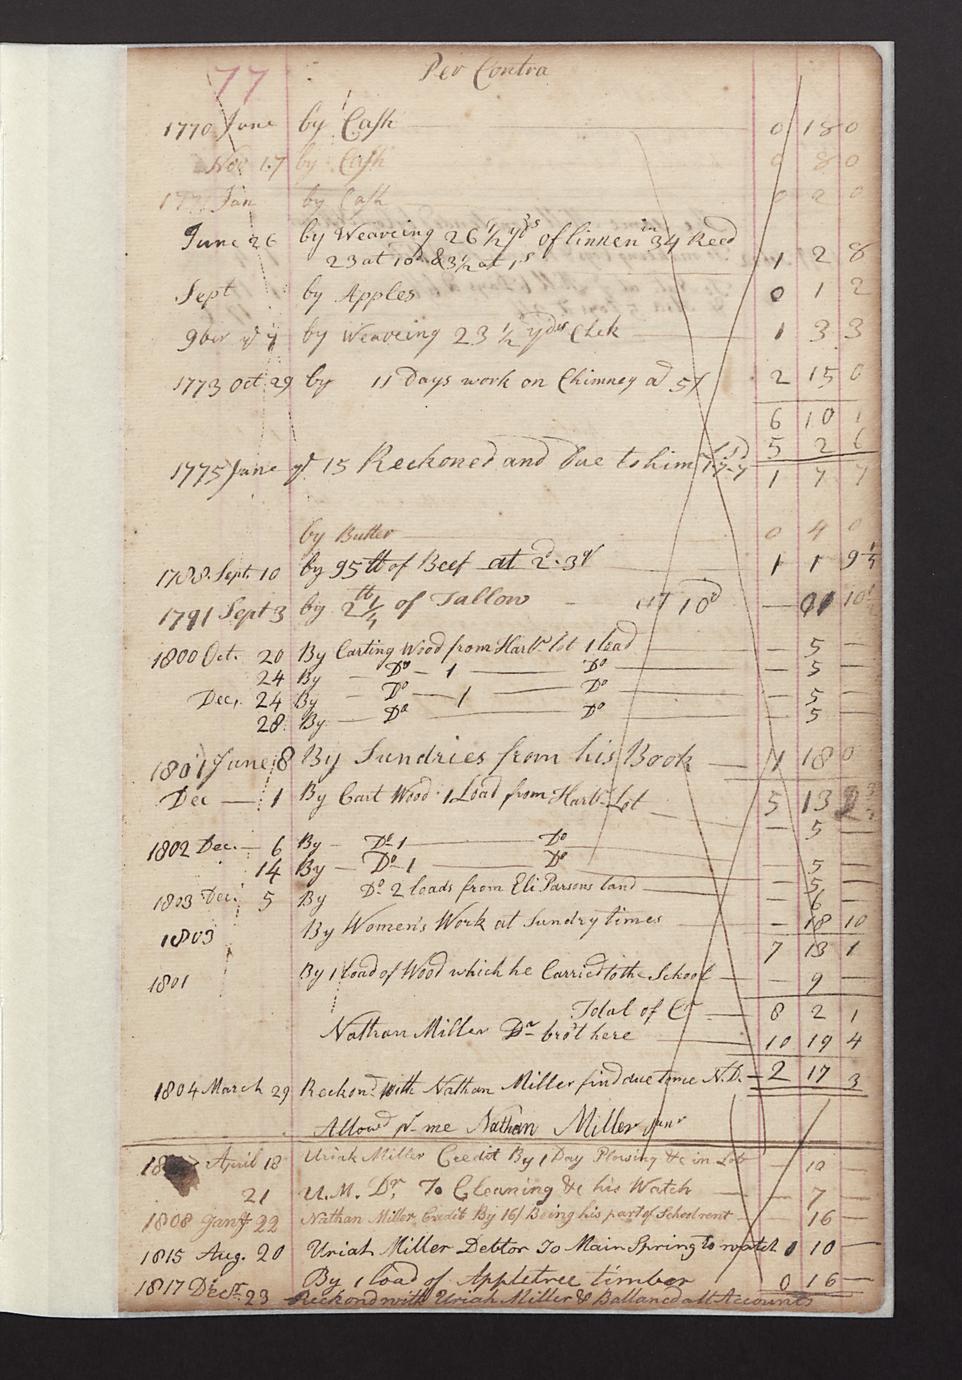 77 Per Contra
1770 June by Cash 0 18 0
Nov 17 by Cash 0 8 0
Jan by Cash 0 2 0
June 26 by Weaveing 26 1/2 yds of linnen in 34 Reed
23 at 10d & 3 1/2 at 1s 1 2 8
Sept by Apples 0 1 2
9ber ye 7 by Weaveing 23 1/2 yds Chek 1 3 3
1773 Oct 29 by 11 Days work on Chimney at 5/ 2 15 0
6 10 1
5 2 6
1775 June ye 15 Reckoned and due to him 1-7-7 1 7 7
by Butter 0 4 0
1788 Sept. 10 by 95 lb of Beef at 2d. 3q 1 1 9 1/4
1791 Sept 3 by 2 lb 1/4 of Tallow 10d — 01 10 1/2
1800 Oct. 20 By Carting Wood from Harts lot 1 load — 5 —
24 By — Do — 1 — Do — 5 —
Dec. 24 By — Do — 1 — Do — 5 —
28 By — Do — Do — 5 —
1801 June 8 By Sundries from his Book — 1 18 0
5 13
Dec — 1 By Cart Wood 1 Load from Harts Lot — 5 —
1802 Dec. — 6 By — Do 1 — Do — 5 —
14 By — Do 1 — Do — 5 —
1803 Dec. 5 By Do 2 loads from Eli Parsons land — 6 —
1803 By Women's Work at Sundry times — 18 10
7 13 1
1801 By 1 load of Wood which he Carried to the School — 9 —
Total of Cr — 8 2 1
Nathan Miller Dr brot here 10 19 4
1804 March 29 Reckond with Nathan Miller find due to me N.D. — 2 17 3
Allowd pr me Nathan Miller junr
April 18 Uriah Miller Credit By 1 Day Plowing &c in Lot — 10
21 U.M. Dr. To Cleaning &c his Watch — 7 —
1808 Jany 22 Nathan Miller Credit By 16/ Being his part of School rent — 16 —
1815 Aug. 20 Uriah Miller Debtor To Main Spring to watch 0 10 —
By 1 load of Appletree timber 0 16 —
1817 Decr. 23 Reckond with Uriah Miller & Ballanced all Accounts